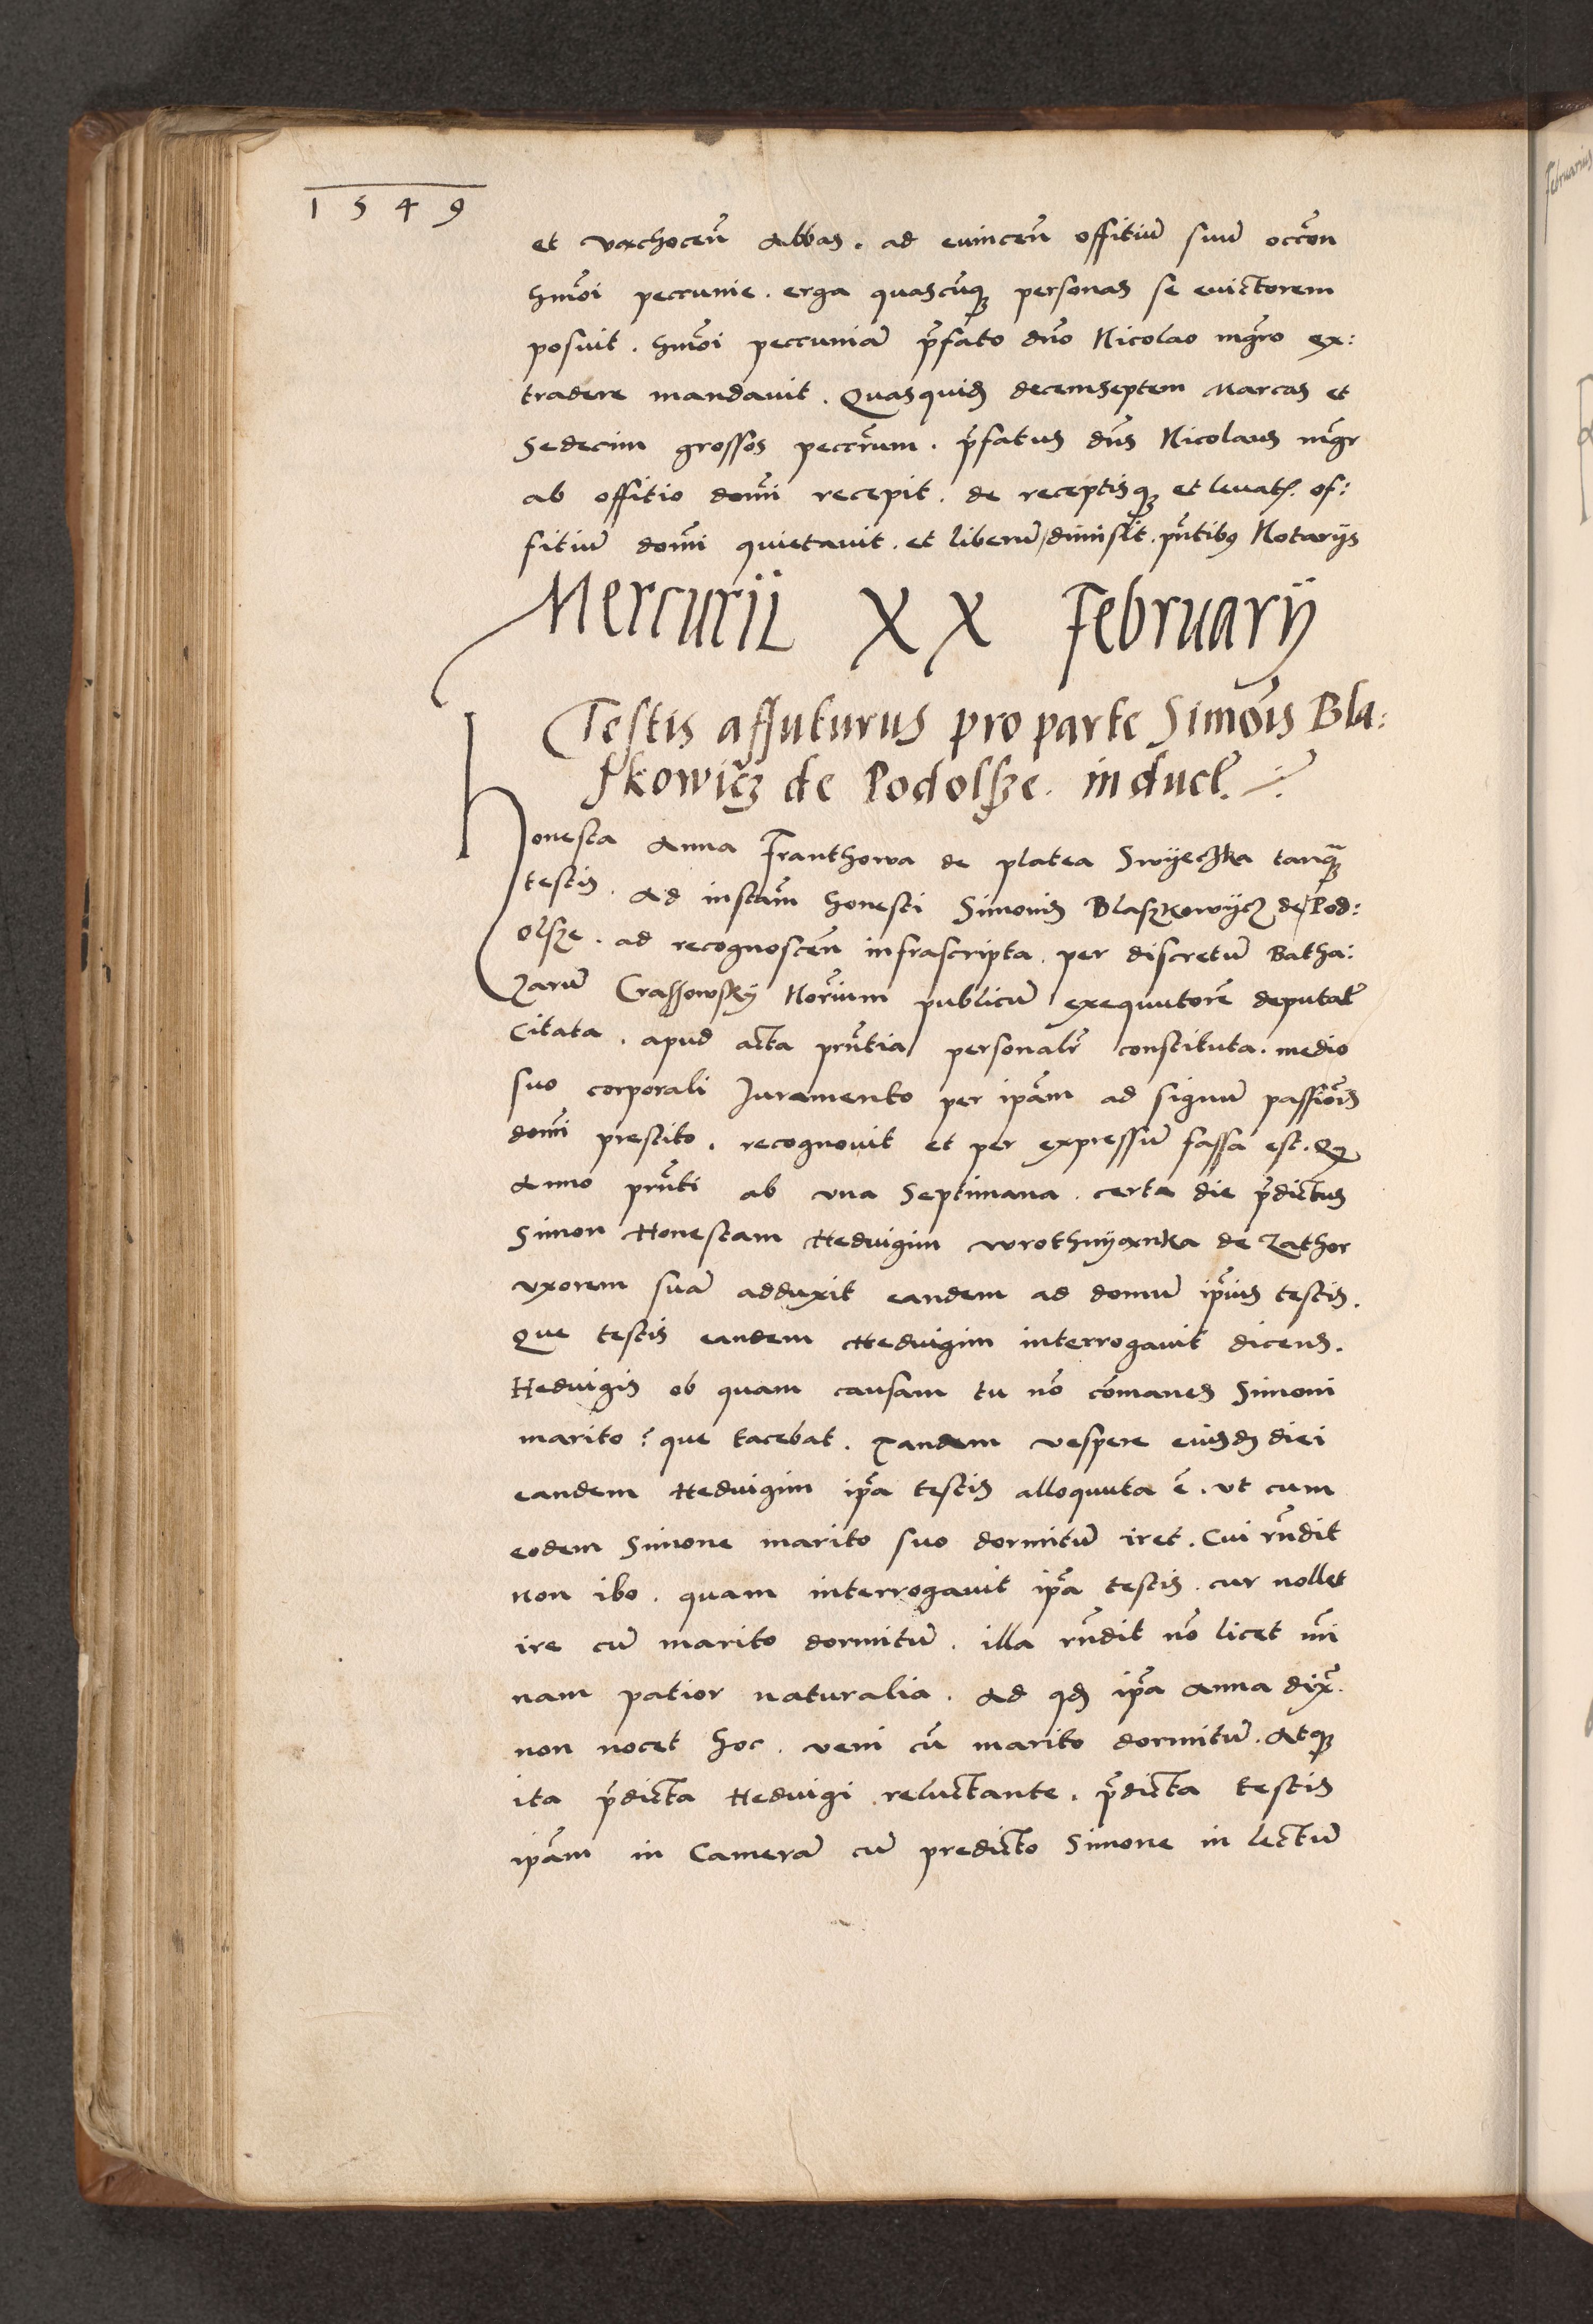 1549
et vachoceñ Abbas. ad euinceñ offitiũ suũ occõn
hmõi peccunie. erga quascũq personas se euictorem
posuit. hmõi peccuniã p̃fato dño Nicolao mgr̃o ex:
tradere mandauit. Quasquid decemseptem Marcas et
Sedecim grossos peccr̃um. p̃fatus dñs Nicolaus mgr̃
ab offitio domĩ recepit. de receptisq et leuat. of:
fitiũ domĩ quietauit. et liberũ dimisit. pñtibus Notarijs
Mercurii XX February
Testis affuturus pro parte Simõis Bla:
skowicz de Podolsze. induct.
Honesta Anna Franthowa de platea Swyeczka tanq̃
testis. Ad instãm honesti Simonis Blaszkowycz de Pod:
olsze. ad recognosceñ infrascripta. per discretũ Batha:
zarũ Crassowsky Norĩum publicũ exequutorẽ deputat̃
Citata. apud acta pñtia personalr̃ constituta. medio
suo corporali Juramento per ipãm ad signũ passiõis
domĩ prestito. recognouit et per expressũ fassa est. Q
Anno pñti ab vna Septimana. certa die p̃dictus
Simon Honestam Hedvigim wrothnyanka de Zathor
vxorem suã adduxit eandem ad domũ ip̃ius testis.
Que testis eandem Hedvigim interrogauit dicens.
Hedvigis ob quam causam tu nõ cõmanes Simoni
marito? que tacebat. Tandem vespere eiusd diei
eandem Hedvigim ip̃a testis alloquuta ẽ. vt cum
eodem Simone marito suo dormitũ iret. Cui rñdit
non ibo. quam interrogauit ip̃a testis. cur nollet
ire cũ marito dormitũ. illa rñdit nõ licet mĩ
nam patior naturalia. Ad qd ip̃a Anna dix̃.
non nocet hoc. veni cũ marito dormitũ. Atq
ita p̃dicta Hedvigi reluctante. p̃dicta testis
ipãm in Camerã cũ predicto Simone in lectũ
Februarius